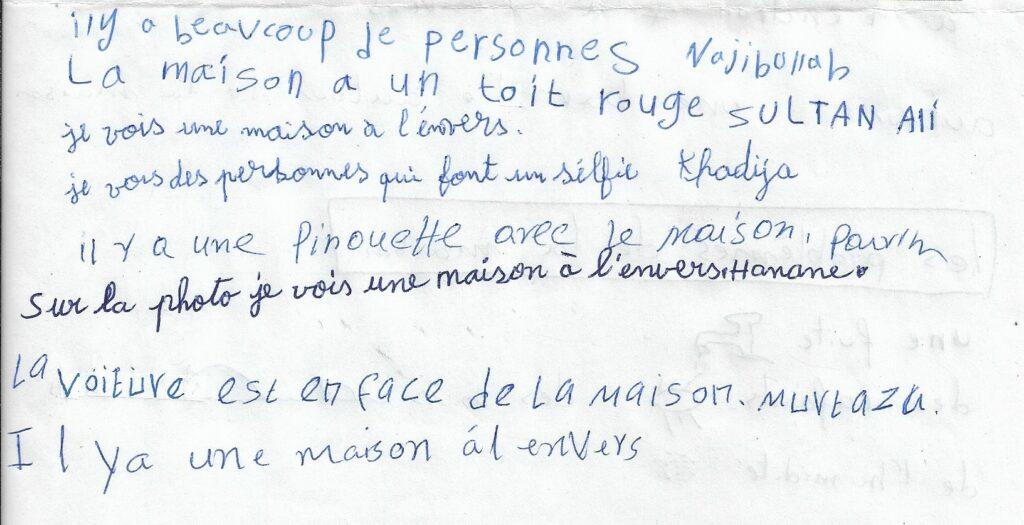 illy a beaucoup de personnes Najibullah
La maison a un toit rouge SULTAN Ali
je vois une maison à l'énvers.
je vois des personnes qui font un sélfie Khadija
il y a une pinouette avec le maison, Parvin
Sur la photo je vois une maison à l'envers. Hanane.
La voiture est en face de La maison. Murtaza.
Il ya une maison ál envers